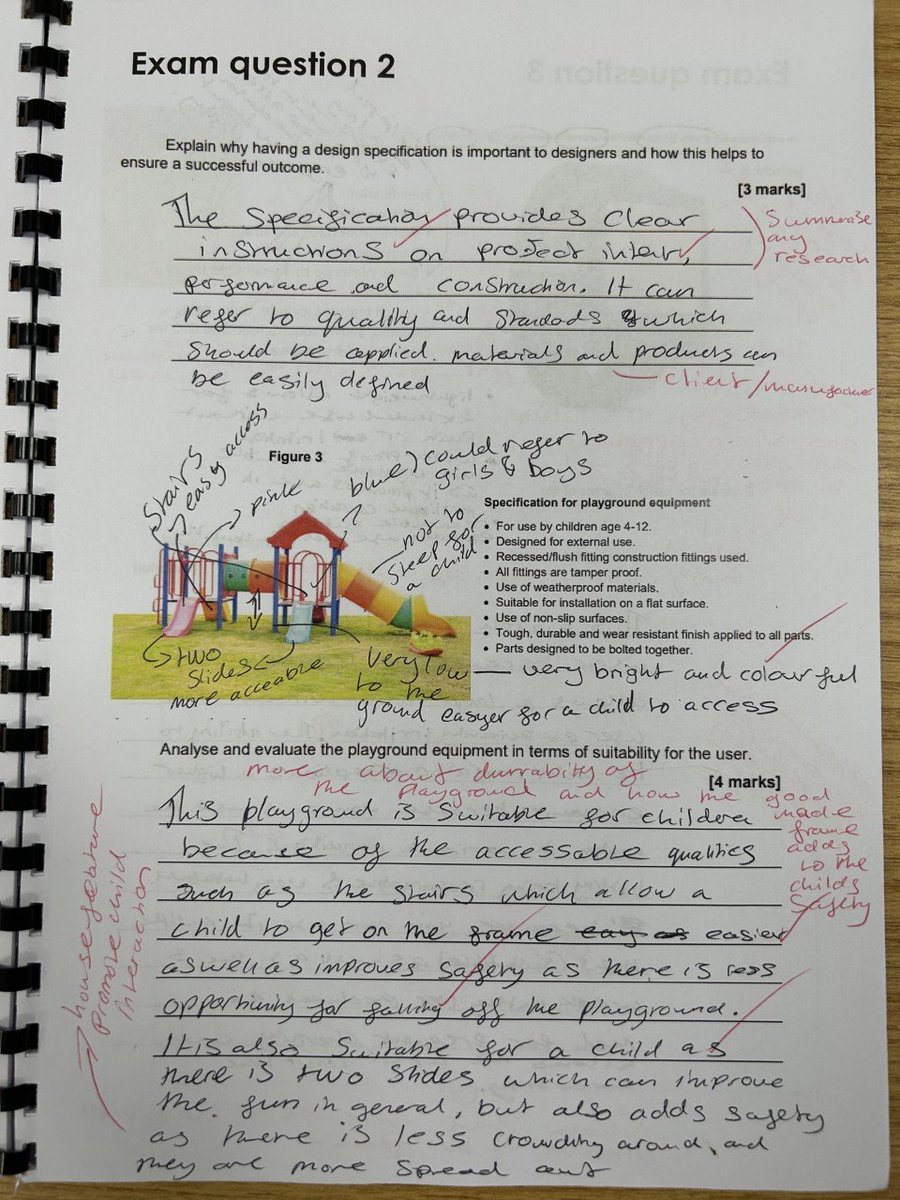 Exam question 2
Explain why having a design specification is important to designers and how this helps to
ensure a successful outcome.
[3 marks]
The Specification provides Clear
instructions on project intent,
performance and construction. It can
refer to quality and standads which
should be applied. materials and products can
be easily defined
Summerase
any
research
client/manufacturer
Figure 3
Stairs
easy access
pink
blue) could refer to
girls & boys
not to
steep for
a child
two
slides
more acceable
very low — very bright and colourful
to the
ground easyer for a child to access
Specification for playground equipment
• For use by children age 4-12.
• Designed for external use.
• Recessed/flush fitting construction fittings used.
• All fittings are tamper proof.
• Use of weatherproof materials.
• Suitable for installation on a flat surface.
• Use of non-slip surfaces.
• Tough, durable and wear resistant finish applied to all parts.
• Parts designed to be bolted together.
Analyse and evaluate the playground equipment in terms of suitability for the user.
[4 marks]
more about durrabity of
the playground and how the good
made
frame
adds
to the
childs
safety
This playground is suitable for children
because of the accessable qualities
such as the stairs which allow a
child to get on the frame easier
aswell as improves safety as there is less
opportunity for falling off the playground.
It is also suitable for a child as
there is two slides which can improve
the fun in general, but also adds safety
as there is less crowding around and
they are more spread out
house feature
promote child
interaction